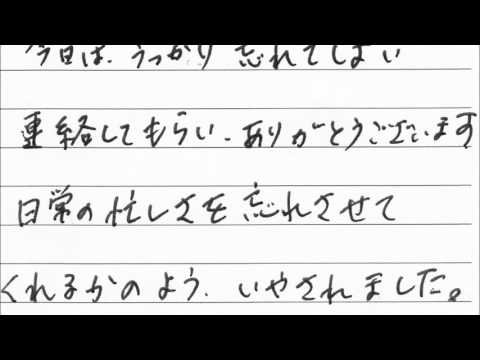 今日は、うっかり忘れてしまい
連絡してもらい、ありがとうございます
日常の忙しさを忘れさせて
くれるかのよう、いやされました。